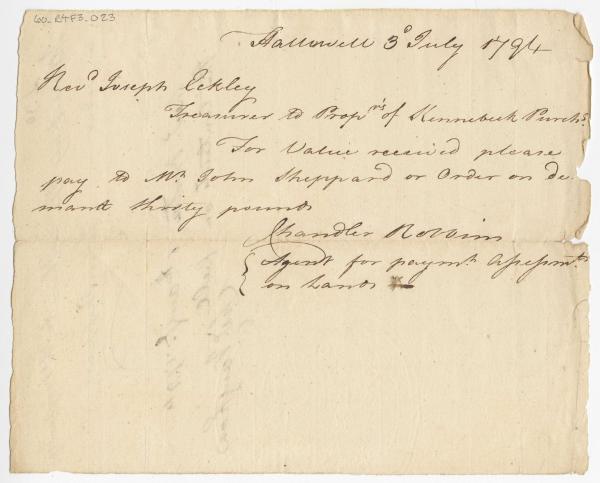 60_RTF3_023
Hallowell 3d July 1794
Revd Joseph Eckley
Treasurer to Proprs of Kennebeck Purchs
For Value received please
pay to Mr John Sheppard or Order on de-
mand thirty pounds
Chandler Robbins
Agent for paymt Assessmts
on Lands